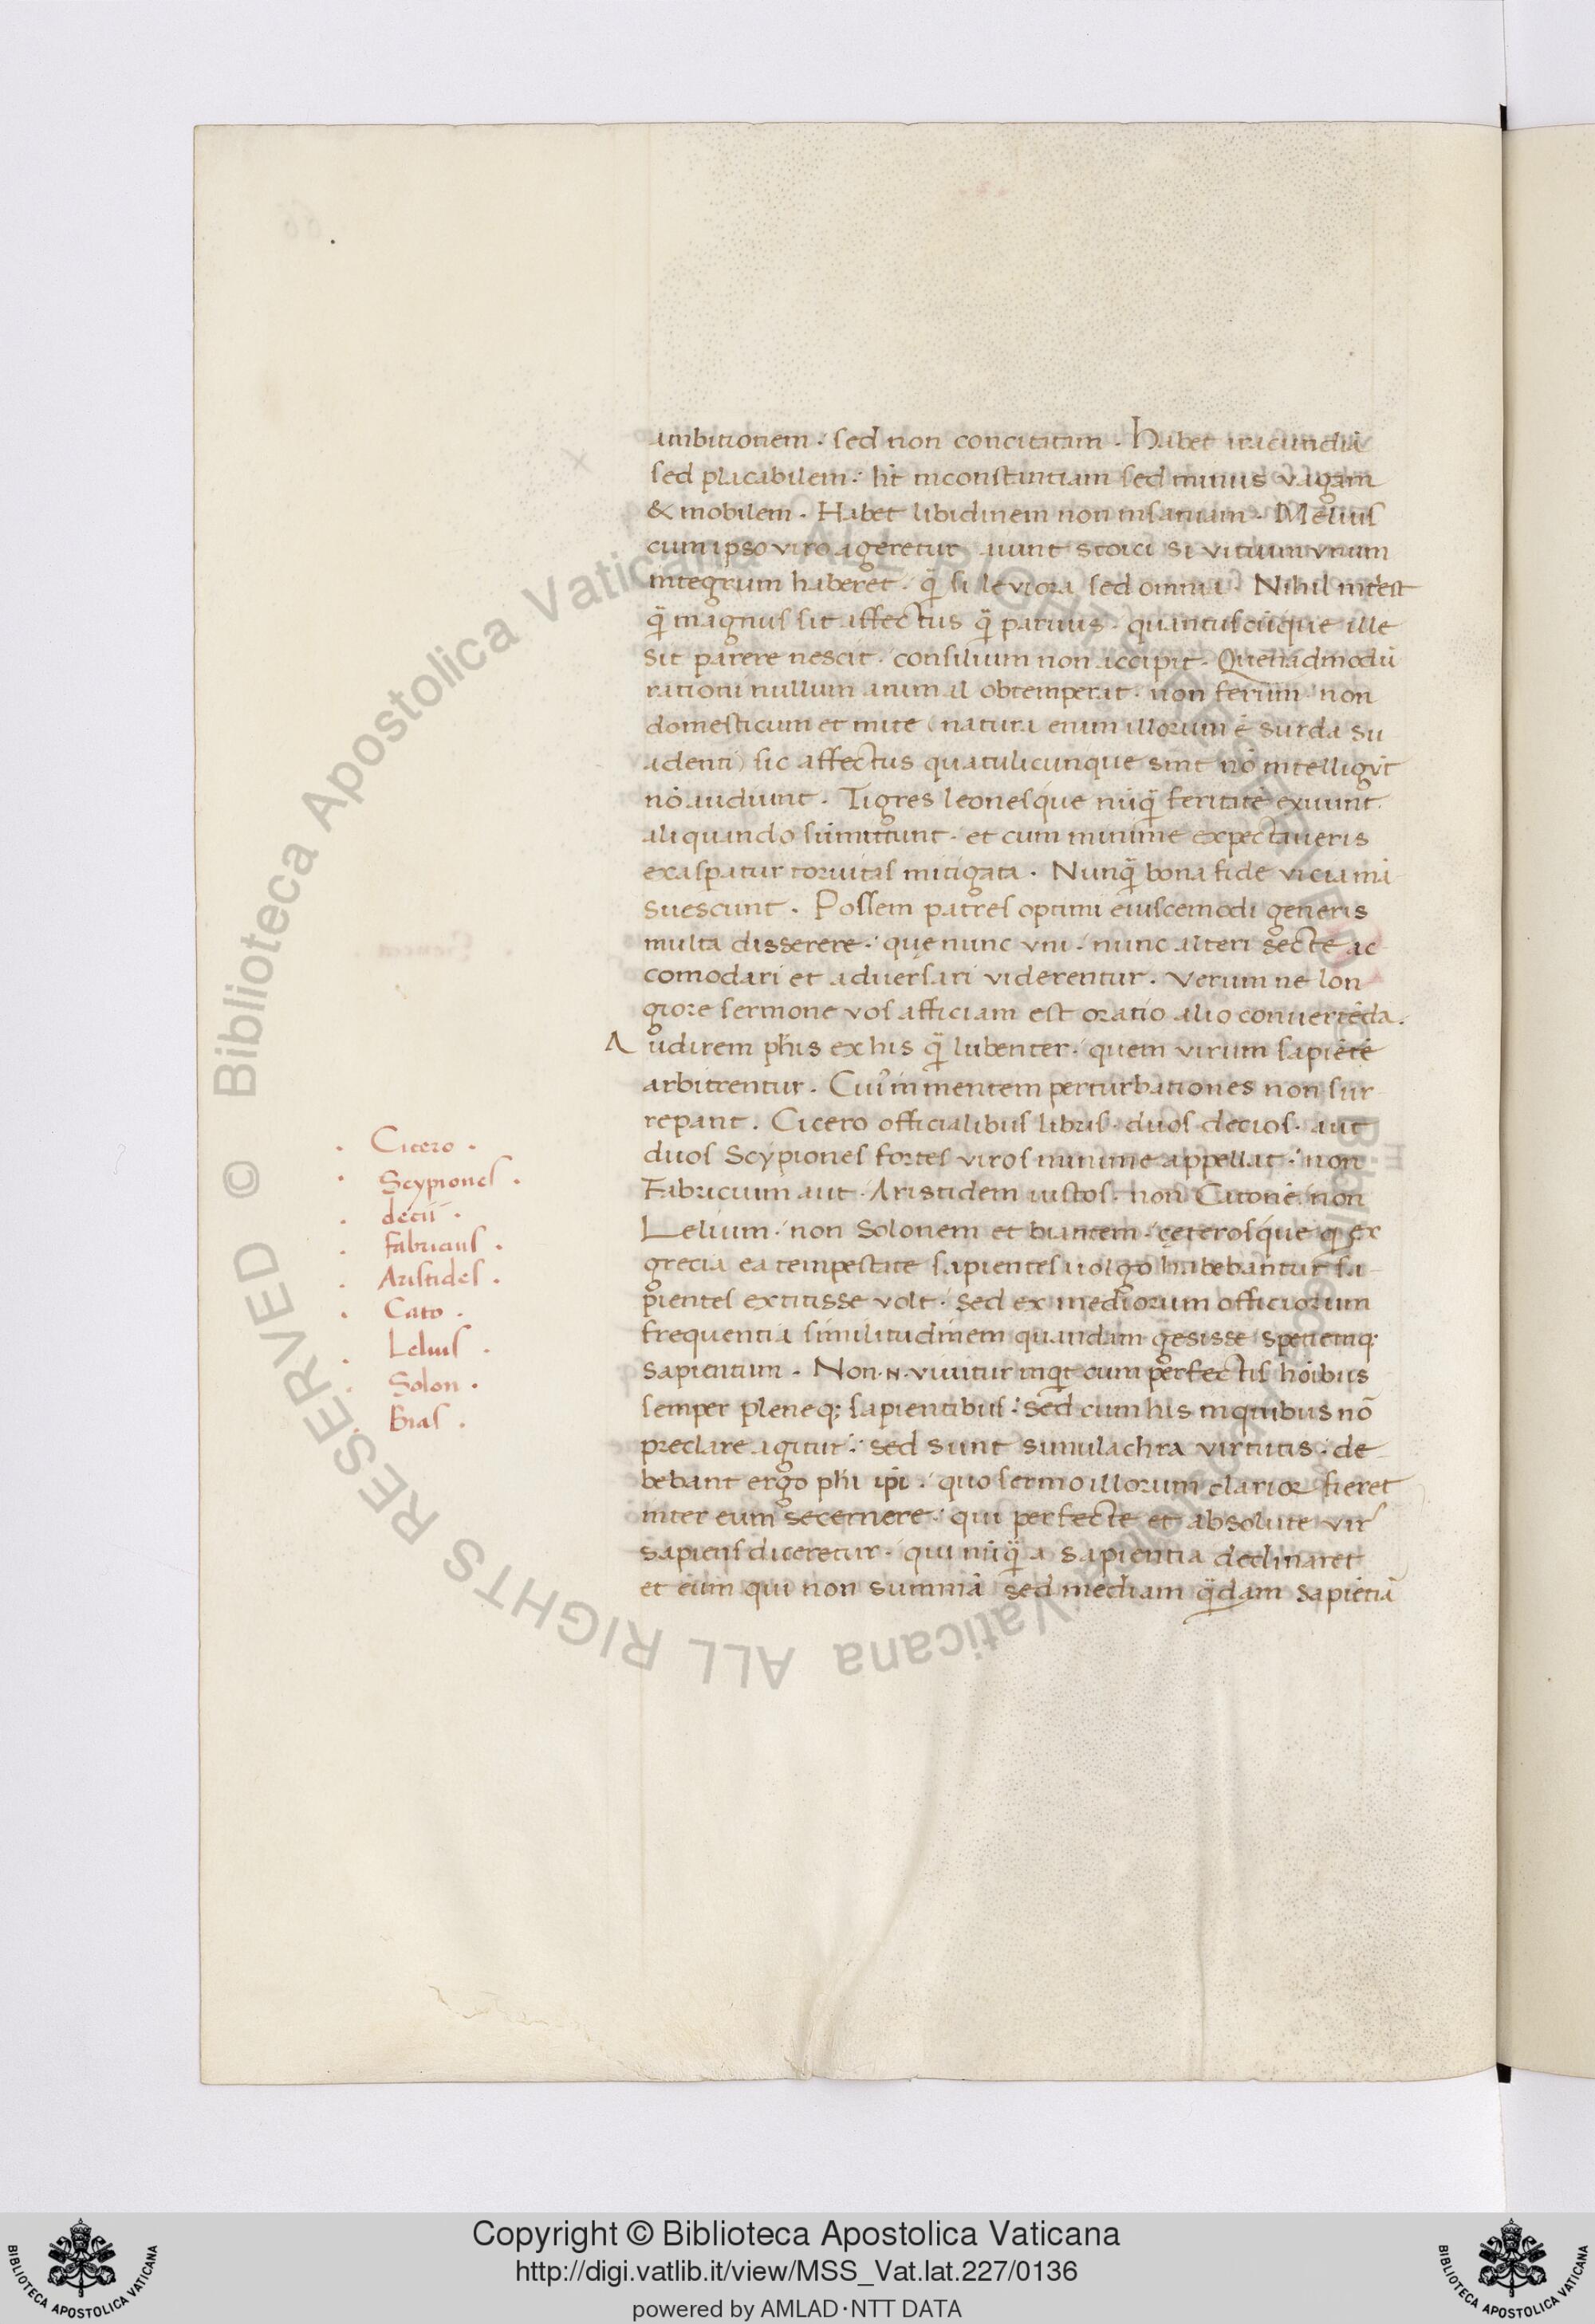 ambitionem · sed non concitatam · Habet iracundiā
sed placabilem · ht̄ inconstantiam sed minus vagam
& mobilem · Habet libidinem non insanam · Melius
cum ipso viro ageretur aiunt stoici si vitium unum
integrum haberet · q̄ si leviora sed omnia · Nihil intēst
q̄ magnus sit affectus q̄ parvus · quantuscūque ille
sit parere nescit · consilium non accipit · Quenadmodū
rationi nullum animal obtemperat · non ferum · non
domesticum et mite (natura enim illorum ē surda su
adenti) sic affectus quatulicunque sint nō intelligūt
nō audiunt · Tigres leonesque nūq̄ feritatē exuunt
aliquando sūmittunt · et cum minime expectaveris
exaspatur torvitas mitigata · Nunq̄ bona fide vicia mā
suescunt · Possem patres optimi eiuscemodi generis
multa disserere · quę nunc uni · nunc alteri sectę ac
comodari et adversari viderentur · Verum ne lon
giore sermone vos afficiam est oratio alio convertēda ·
Audirem ph̄is ex his q̄ lubenter · quem virum sapiētē
arbitrentur · Cui' in mentem perturbationes non sur
repant · Cicero officialibus libris · duos decios · aut
duos Scypiones fortes viros minime appellat · non
Fabricium aut · Aristidem iustos · non Catonē non
Lelium · non Solonem et biantem · cęterosque q ex
grecia ea tempestate sapientes volgo habebantur sa
pientes extitisse volt · sed ex mediorum officiorum
frequentia similitudinem quandam gesisse speciemq;
sapientum · Non · N · vivitur inqt cum perfectis hōibus
semper pleneq; sapientibus · sed cum his in quibus nō
preclare agitur · sed sunt simulachra virtutis · de
bebant ergo phī ipī · quo sermo illorum clarior fieret
inter eum secernere · qui perfecte et absolute vir
sapiens diceretur · qui nūq̄ a sapientia declinaret
et eum qui non summā sed mediam q̄dam sapiētiā
· Cicero ·
· Scypiones ·
· decii ·
· fabricius ·
· Aristides ·
· Cato ·
· Lelius ·
· Solon ·
· Bias ·
© Biblioteca Apostolica Vaticana ALL RIGHTS RESERVED
Copyright © Biblioteca Apostolica Vaticana
http://digi.vatlib.it/view/MSS_Vat.lat.227/0136
powered by AMLAD·NTT DATA
BIBLIOTECA APOSTOLICA VATICANA
BIBLIOTECA APOSTOLICA VATICANA